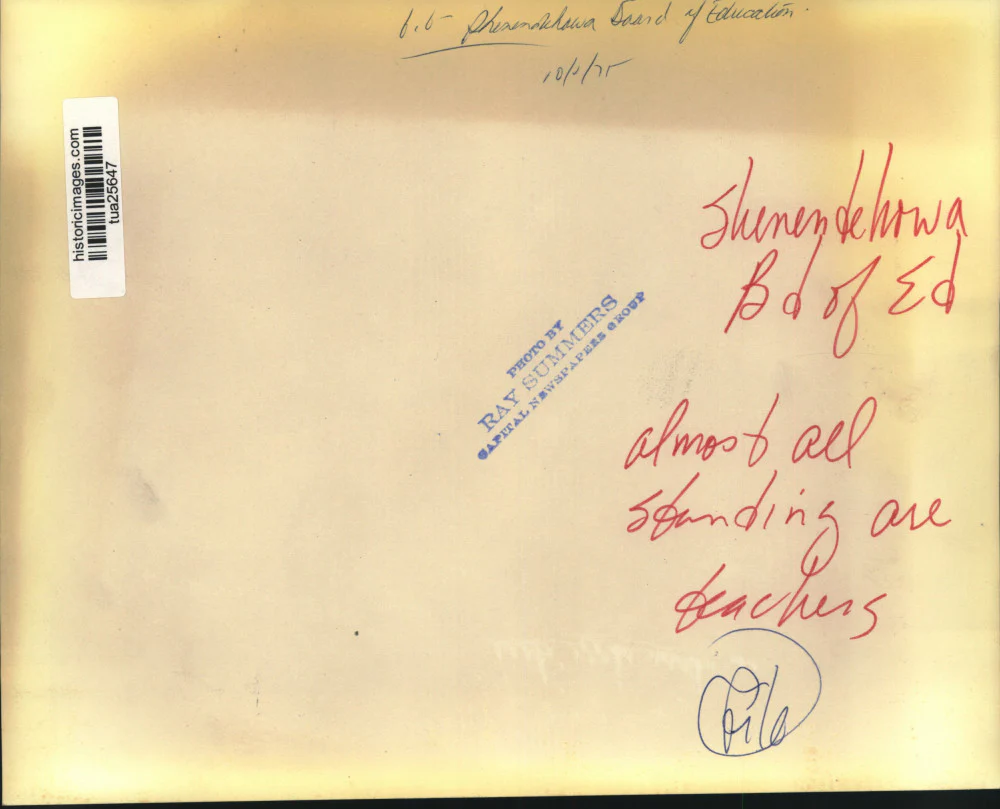 Shenendehowa Board of Education.
historicimages.com
tua25647
Shenendehowa
Bd of Ed
PHOTO BY
RAY SUMMERS
CAPITAL NEWSPAPERS GROUP
almost all
standing are
teachers
File